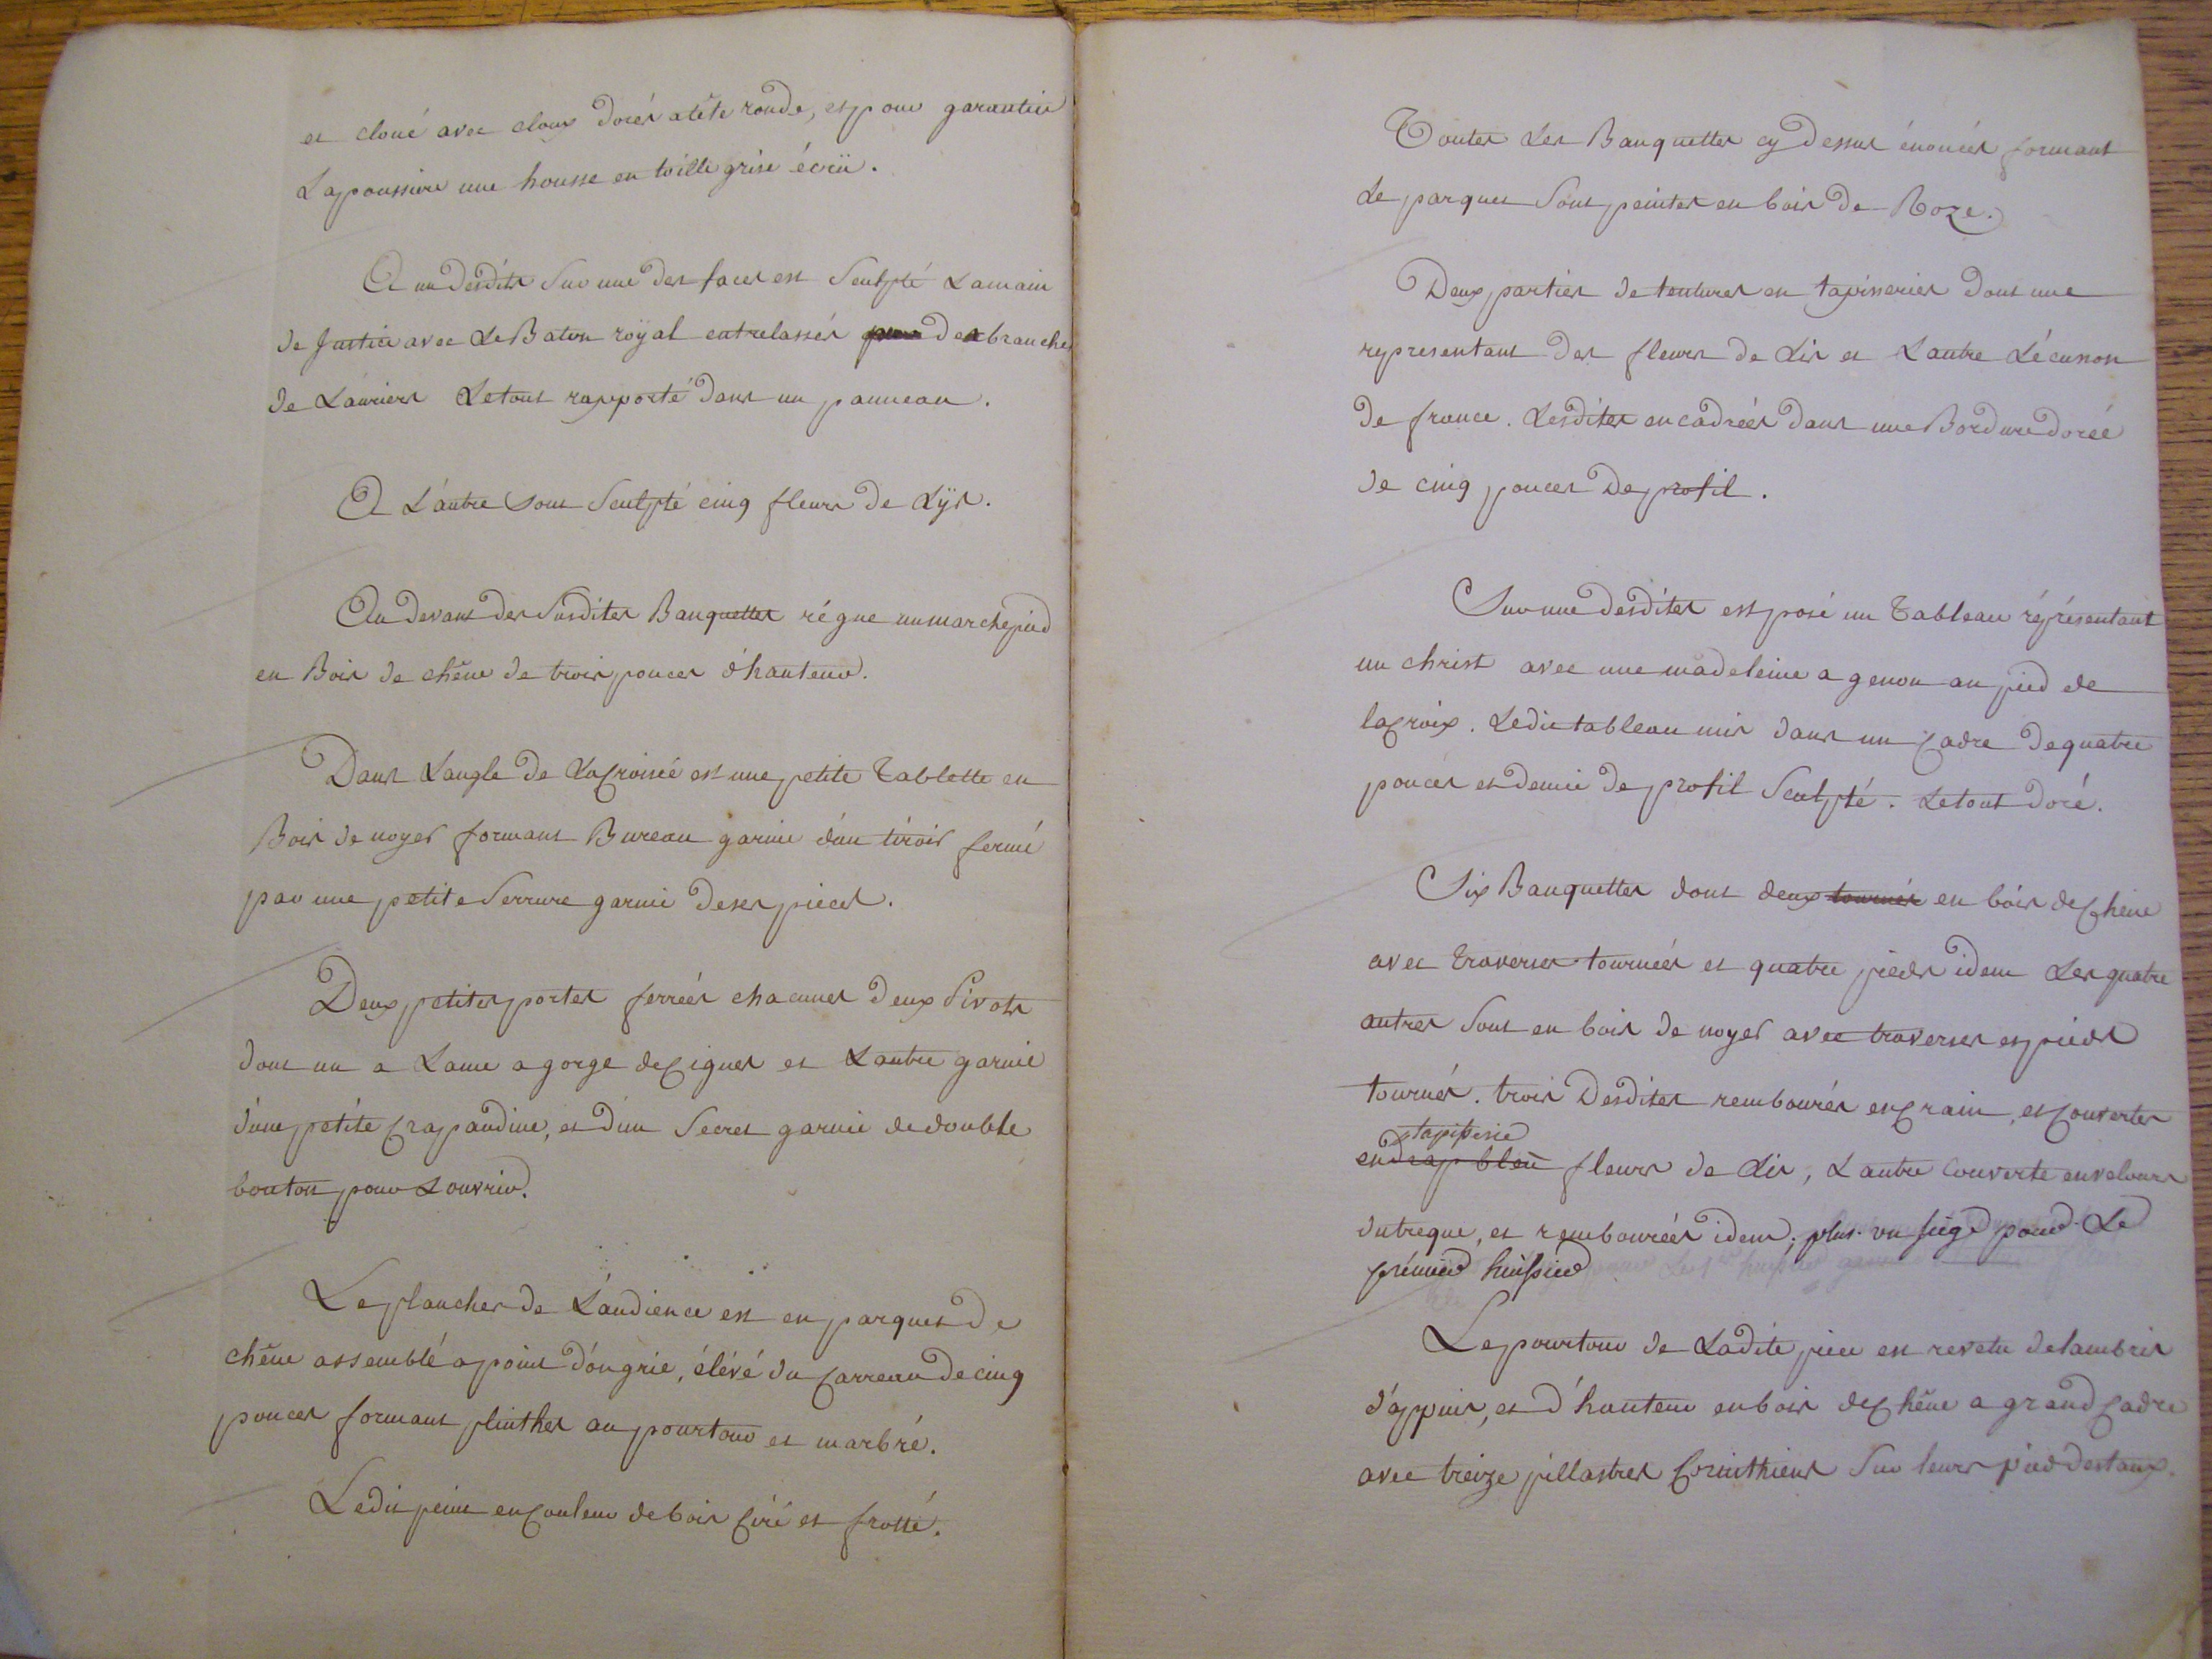 et cloué avec cloux dorés a tête ronde, et pour garantir
La poussiere une housse en toille grise écrüe.
A un desdits Sur une des faces est Sculpté La main
de Justice avec Le Baton roÿal entrelassés des branches
de Lauriers Le tout rapporté dans un panneau.
A L'autre Sont Sculpté cinq fleurs de Lÿs.
Au devant des Susdites Banquettes régne un marchepied
en Bois de chêne de trois pouces d'hauteur.
Dans L'angle de La Croisée est une petite Tablette en
Bois de noyer formant Bureau garnie d'un tiroir fermé
par une petite Serrure garnie de ses pieces.
Deux petites portes ferrées chacunes deux Pivots
dont un a Lame a gorge de Cignes et L'autre garnie
d'une petite Crapaudine, et d'un Secret garnie de double
bouton pour Louvrir.
Le plancher de L'audience est en parquet de
chêne assemblé a point d'ongrie, élévé du Carreau de cinq
pouces formant plinthes au pourtour et marbré.
Ledit peint en Couleur de bois Ciré et frotté.
Toutes Les Banquettes cy dessus énoncés formant
Le parquet Sont peintes en bois de Roze.
Deux parties de tentures en tapisseries dont une
representant des fleurs de Lis et L'autre L'écusson
de france. Lesdites encadréés dans une Bordure dorée
de cinq pouces De profil.
Sur une desdites est posé un Tableau réprésentant
un christ avec une madeleine a genou au pied de
la Croix. Ledit tableau mis dans un Cadre de quatre
pouces et demie de profil Sculpté. Le tout doré.
Six Banquettes dont deux tournés en bois de Chêne
avec traverses tournées et quatre pieds idem Les quatre
autres Sont en bois de noyer avec traverses et pieds
tournés. trois Desdites rembourés en Crain, et Couvertes
tapisserie
en drap bleü fleurs de Lis, L'autre Couverte en velours
dutreque, et rembouréés idem; plus un siege pour Le
prémier huissier
Le pourtour de Ladite piece est revetu de lambris
d'appuis, et d'hauteur en bois de Chêne a grand Cadre
avec treize pillastres Corinthiens Sur leurs pied destaux.